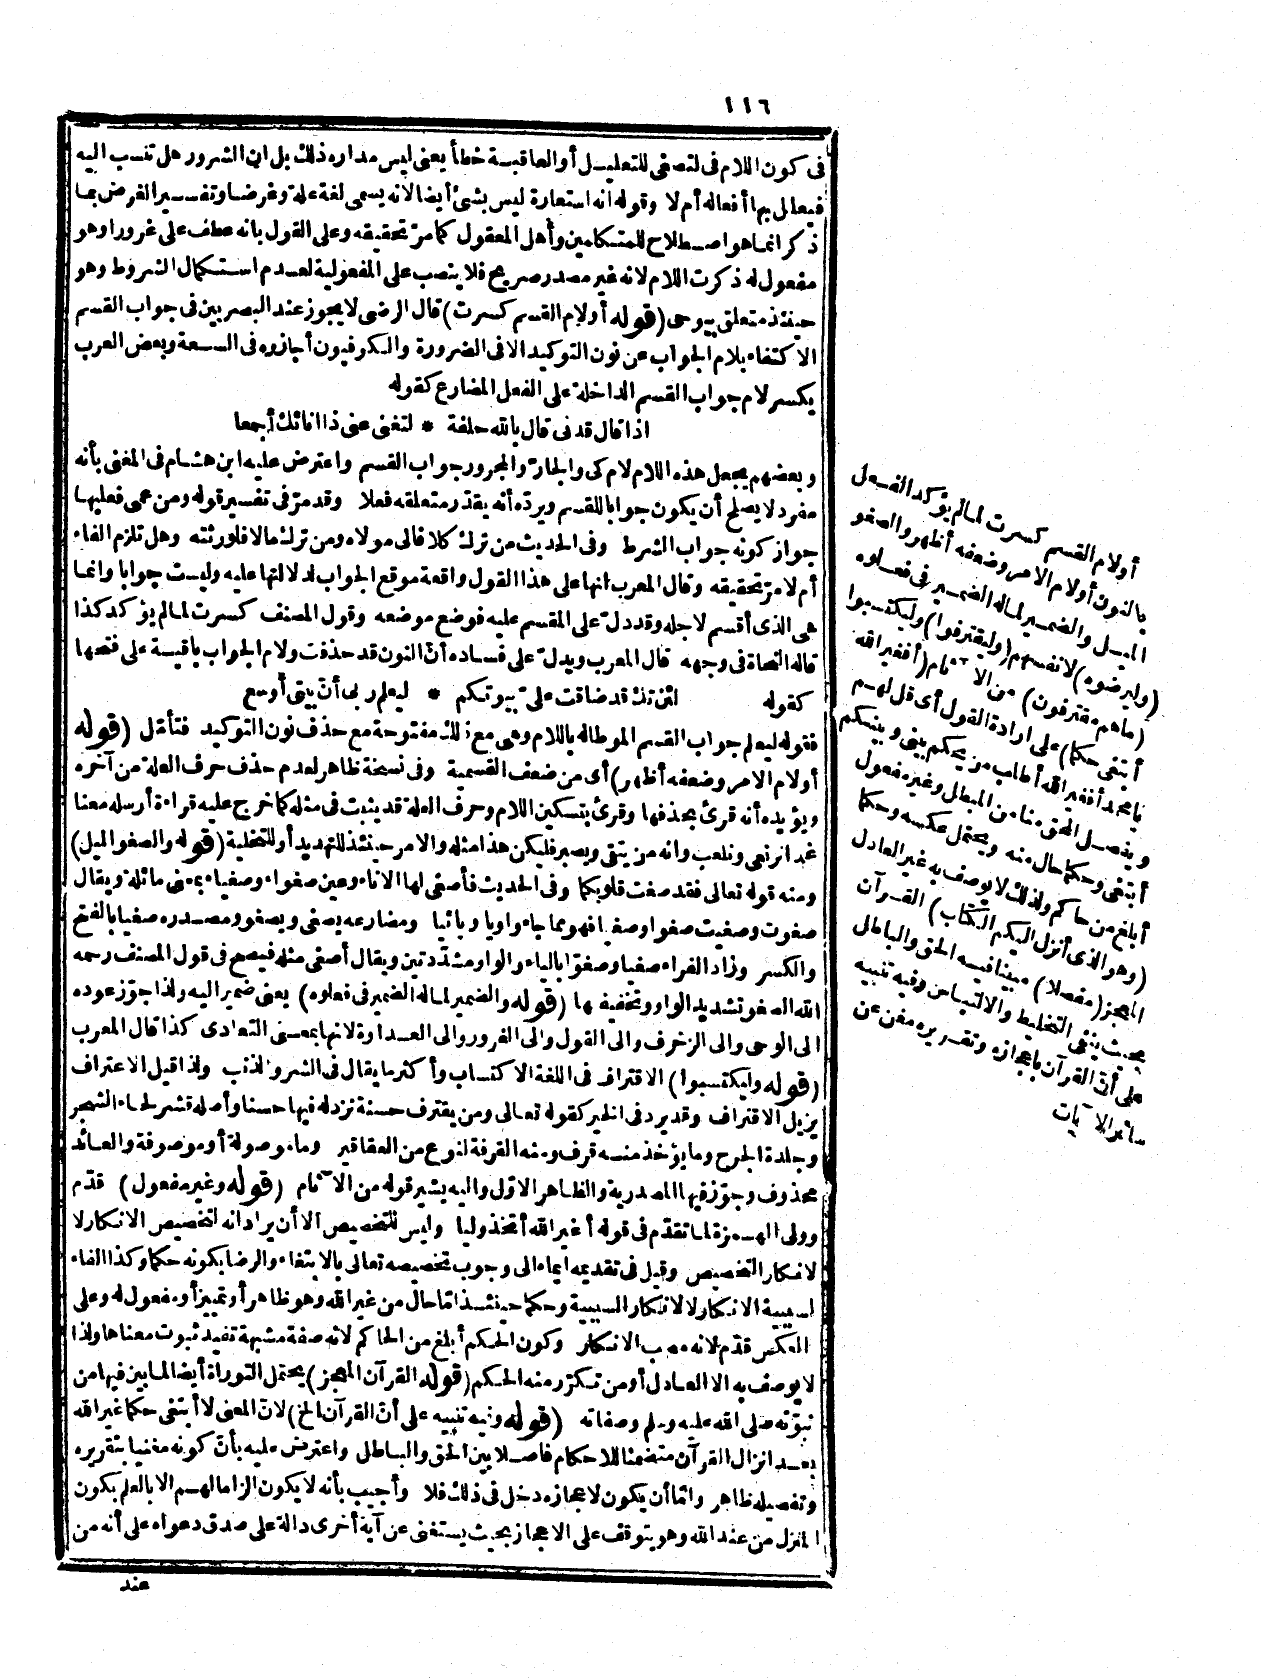 ١١٦
فى كون اللام فى لتصغى للتعليل أو العاقبة خطأ يعنى ليس مداره ذلك بل ان الشرور هل تنسب اليه
فيعالى بها أفعاله أم لا وقوله انه استعارة ليس بشئ أيضا لانه يسمى لغة علة وغرضا وتفسير الغرض بما
ذكر انما هو اصطلاح للمتكلمين وأهل المعقول كما مرّ تحقيقه وعلى القول بانه عطف على غرورا وهو
مفعول له ذكرت اللام لانه غير مصدر صريح فلا ينتصب على المفعولية لعدم استكمال الشروط وهو
حينئذ متعلق بيوحى (قوله أولام القسم كسرت) قال الرضى لا يجوز عند البصريين فى جواب القسم
الاكتفاء بلام الجواب عن نون التوكيد الا فى الضرورة والكوفيون أجازوه فى السعة وبعض العرب
يكسر لام جواب القسم الداخلة على الفعل المضارع كقوله
اذا قال قدنى قال بالله حلفة * لتغنى عنى ذا انائك أجمعا
وبعضهم يجعل هذه اللام لام كى والجارّ والمجرور جواب القسم واعترض عليه ابن هشام فى المغنى بأنه
مفرد لا يصلح أن يكون جوابا للقسم ويردّه أنه يقدّر متعلقه فعلا وقد مرّ فى تفسير قوله ومن عمى فعليها
جواز كونه جواب الشرط وفى الحديث من ترك كلا فالى مولاه ومن ترك مالا فلورثته وهل تلزم الفاء
أم لا مرّ تحقيقه وقال المعرب انها على هذا القول واقعة موقع الجواب لدلالتها عليه وليست جوابا وانما
هى الذى أقسم لاجله وقد دلّ على المقسم عليه فوضع موضعه وقول المصنف كسرت لما لم يؤكد كذا
قاله النحاة فى وجهه قال المعرب ويدلّ على فساده أنّ النون قد حذفت ولام الجواب باقية على فتحها
كقوله لئن تك قد ضاقت علىّ بيوتكم * ليعلم ربى أنّ بيتى أوسع
فقوله ليعلم جواب القسم الموطأ له باللام وهى مع ذلك مفتوحة مع حذف نون التوكيد فتأمّل (قوله
أولام الامر وضعفه أظهر) أى من ضعف القسمية وفى نسخة ظاهر لعدم حذف حرف العلة من آخره
ويؤيده أنه قرئ بحذفها وقرئ بتسكين اللام وحرف العلة قد يثبت فى مثله كما خرج عليه قراءة أرسله معنا
غدا نرتعى ونلعب وانه من يتقى ويصبر فليكن هذا مثله والامر حينئذ للتهديد أو للتخلية (قوله والصغو الميل)
ومنه قوله تعالى فقد صغت قلوبكما وفى الحديث فأصغى لها الاناء وعين صغواء وصغياء بمعنى مائلة ويقال
صغوت وصغيت صغوا وصغيا فهو مما جاء واويا ويائيا ومضارعه يصغى ويصغو ومصدره صغيا بالفتح
والكسر وزاد الفراء صغيا وصغوّا بالياء والواو مشدّدتين ويقال أصغى مثله فيصح فى قول المصنف رحمه
الله الصغو تشديد الواو وتخفيفها (قوله والضمير لما له الضمير فى فعلوه) يعنى ضمير اليه ولذا جوّز عوده
الى الوحى والى الزخرف والى القول والى الغرور والى العداوة لانها بمعنى التعادى كذا قال المعرب
(قوله وليكتسبوا) الاقتراف فى اللغة الاكتساب وأكثر ما يقال فى الشر والذنب ولذا قيل الاعتراف
يزيل الاقتراف وقد يرد فى الخير كقوله تعالى ومن يقترف حسنة نزد له فيها حسنا وأصله قشر لحاء الشجر
وجلدة الجرح وما يؤخذ منه قرف ومنه القرفة لنوع من العقاقير وما موصولة أو موصوفة والعائد
محذوف وجوّز فيها المصدرية والظاهر الاوّل واليه يشير قوله من الآثام (قوله وغير مفعول) قدّم
وولى الهمزة لما تقدّم فى قوله أغير الله أتخذ وليا وليس للتخصيص الا أن يراد انه لتخصيص الانكار لا
لانكار التخصيص وقيل فى تقديمه ايماء الى وجوب تخصيصه تعالى بالابتغاء والرضا بكونه حكما وكذا الفاء
لسببية الانكار لا لانكار السببية وحكما حينئذ اما حال من غير الله وهو ظاهر أو تمييز أو مفعول له وعلى
العكس قدّم لانه مصب الانكار وكون الحكم أبلغ من الحاكم لانه صفة مشبهة تفيد ثبوت معناها ولذا
لا يوصف به الا العادل أو من تكرّر منه الحكم (قوله القرآن المعجز) يحتمل التوراة أيضا لما بين فيها من
نبوّته صلى الله عليه وسلم وصفاته (قوله وفيه تنبيه على أنّ القرآن الخ) لانّ المعنى لا أبتغى حكما غير الله
بعد انزال القرآن متضمنا للاحكام فاصلا بين الحق والباطل واعترض عليه بأنّ كونه مغنيا بتقريره
وتفصيله ظاهر وامّا أن يكون لاعجازه دخل فى ذلك فلا وأجيب بأنه لا يكون الزاما لهم الا بالعلم بكون
المنزل من عند الله وهو يتوقف على الاعجاز بحيث يستغنى عن آية أخرى دالة على صدق دعواه على أنه من
عند
أولام القسم كسرت لما لم يؤكد الفعل
بالنون أولام الامر وضعفه أظهر والصغو
الميل والضمير لما له الضمير فى فعلوه
(وليرضوه) لانفسهم (وليقترفوا) وليكتسبوا
(ما هم مقترفون) من الآثام (أفغير الله
أبتغى حكما) على ارادة القول أى قل لهم
يا محمد أفغير الله أطلب من يحكم بينى وبينكم
ويفصل المحق منا من المبطل وغير مفعول
أبتغى وحكما حال منه ويحتمل عكسه وحكما
أبلغ من حاكم ولذلك لا يوصف به غير العادل
(وهو الذى أنزل اليكم الكتاب) القرآن
المعجز (مفصلا) مبينا فيه الحق والباطل
بحيث ينفى التخليط والالتباس وفيه تنبيه
على أنّ القرآن باعجازه وتقريره مغن عن
سائر الآيات